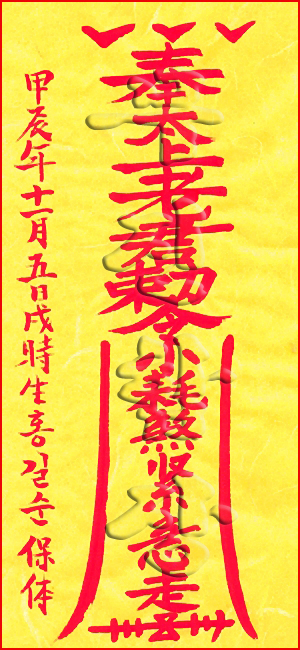 奉太上老君勅令小耗煞災緊急走
甲辰年十一月五日戌時生홍길순保体